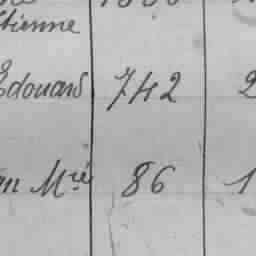 Etienne
Edouard 742 2
an Mie 86 1